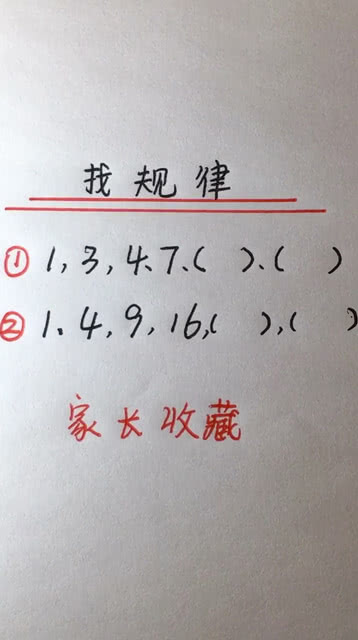 找规律
① 1, 3, 4、7、(  )、(  )
② 1、4, 9, 16, (  ), (  )
家长收藏